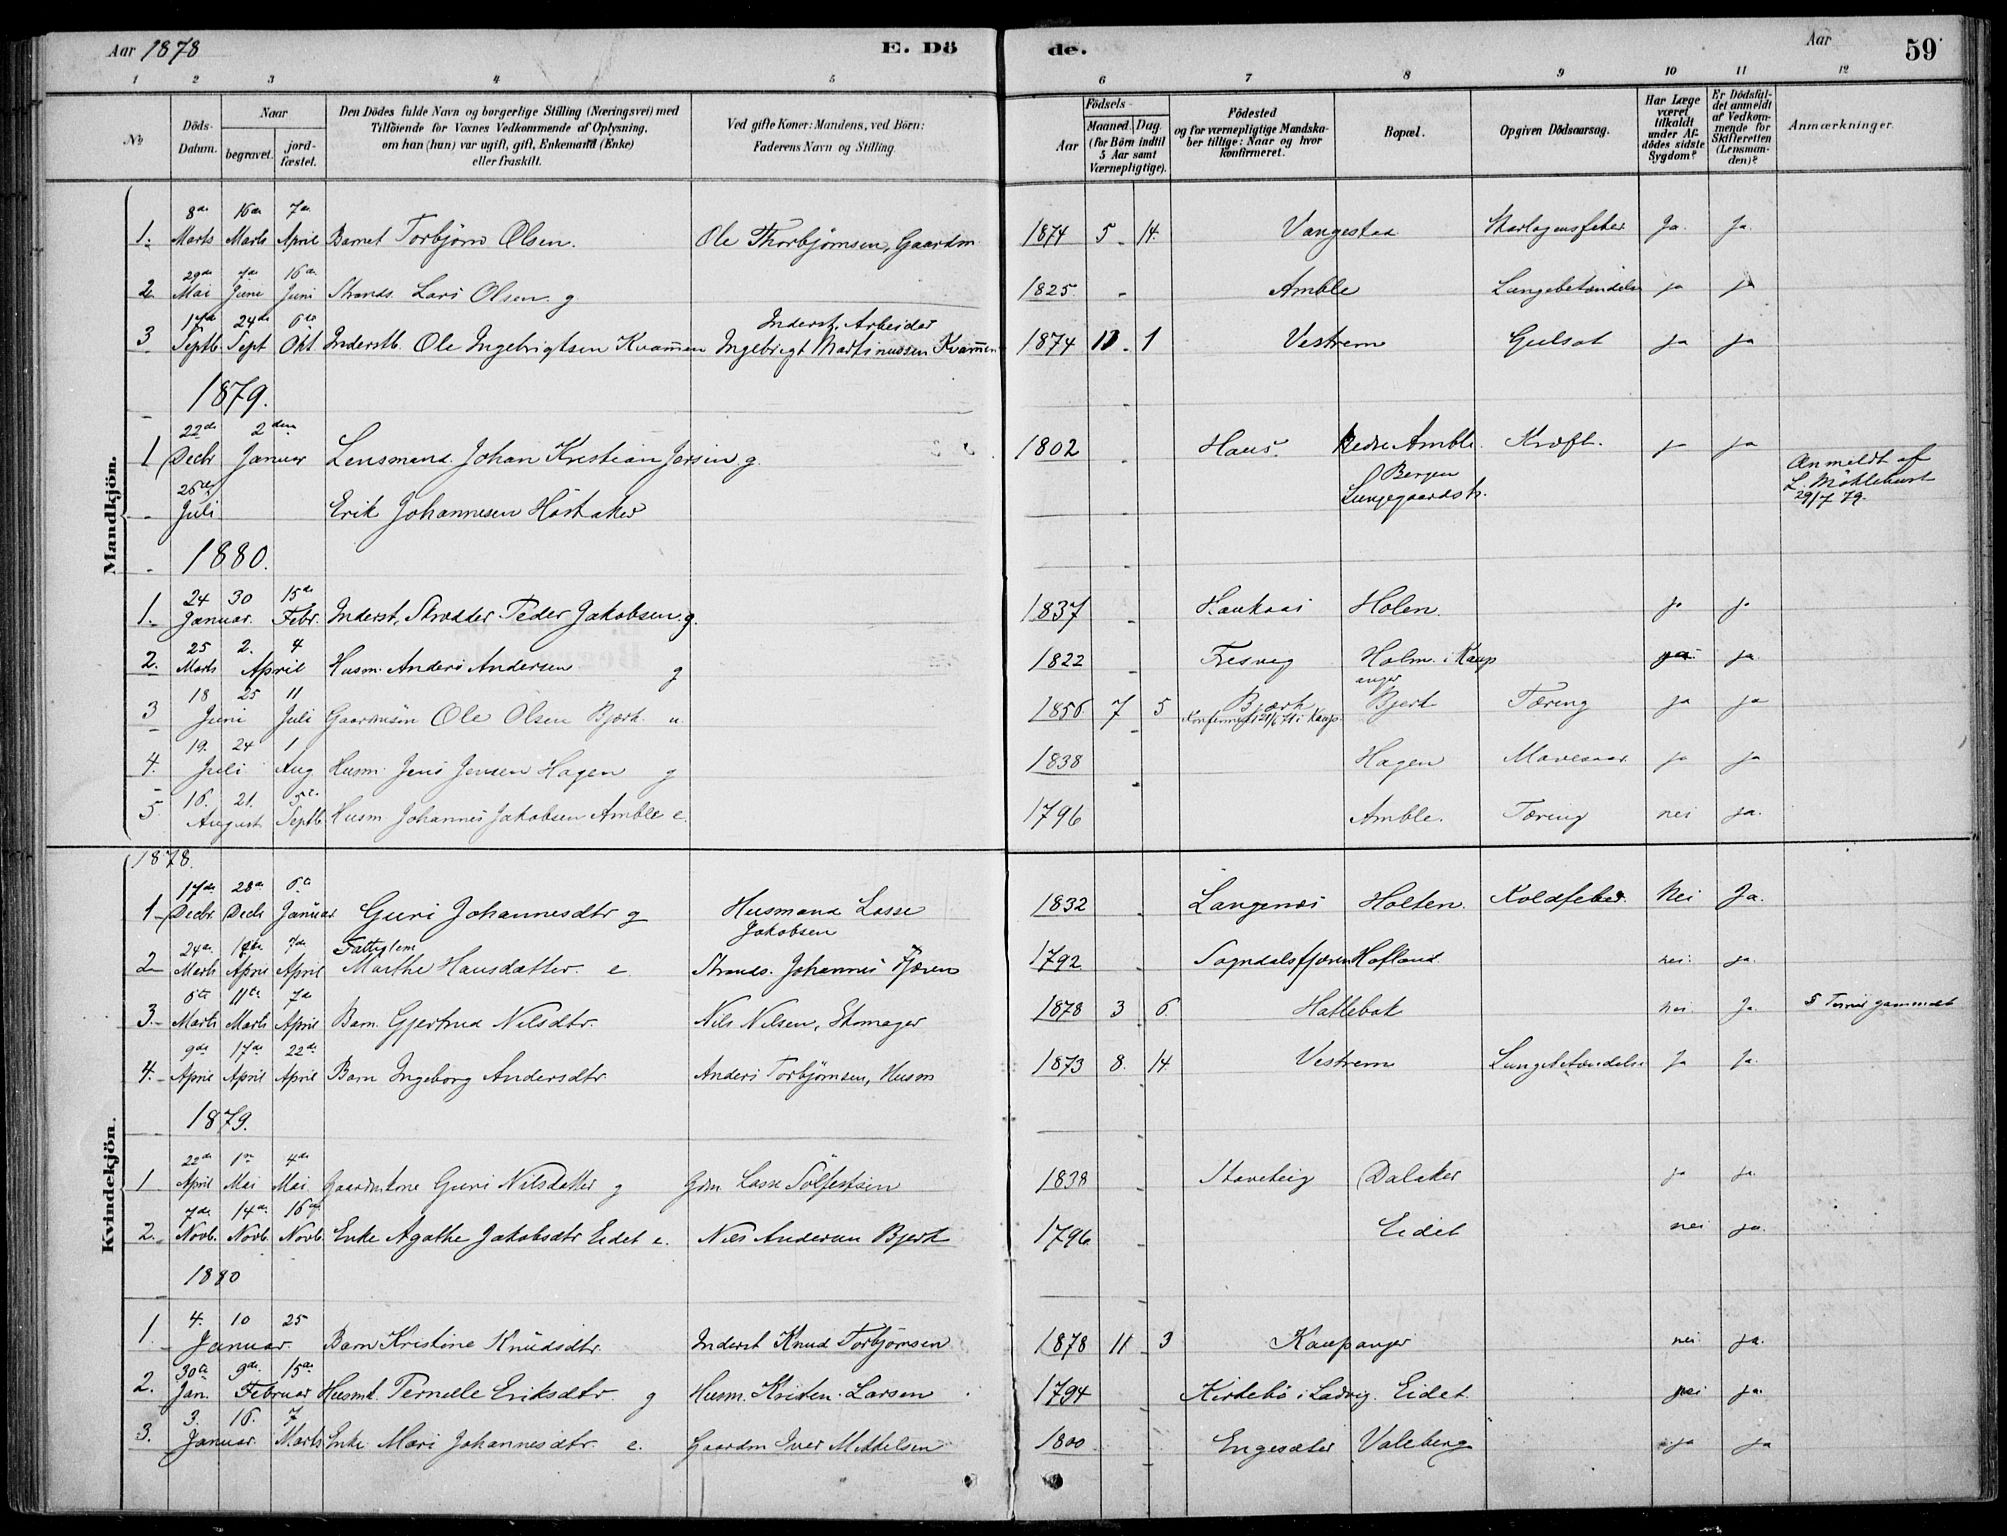 Aar 1878 E. Dö de. Aar 59
1 2 3 4 5 6 7 8 9 10 11 12
№ Döds-Datum. Naar begravet. jordfæstet. Den Dödes fulde Navn og borgerlige Stilling (Næringsvei) med Tilföiende for Voxnes Vedkommende af Oplysning, om han (hun) var ugift, gift, Enkemand (Enke) eller fraskilt. Ved gifte Koner: Mandens, ved Börn: Faderens Navn og Stilling Födsels- Aar Maaned. Dag. (for Börn indtil 5 Aar samt Værnepligtige). Födested og for værnepligtige Mandskaber tillige: Naar og hvor konfirmeret. Bopæl. Opgiven Dödsaarsag. Har Læge været tilkaldt under Afdödes sidste Sygdom? Er Dödsfaldet anmeldt af Vedkommende for Skifteretten (Lensmanden)? Anmærkninger.
Mandkjön.
1. 8de Marts 16de Marts 7de April Barnet Torbjörn Olsen. Ole Thorbjörnsen, Gaardm. 1874 5 14. Vangestad Skarlagensfeber Ja. Ja.
2. 29de Mai 7de Juni 16de Juni Strands. Lars Olsen. g 1825. Amble Lungebetændelse ja ja
3 17de Septb. 24de Sept 6te Okt. Inderstb. Ole Ingebrigtsen Kvammen Inderst, Arbeider Ingebrigt Martinussen Kvammen 1874 11 1 Vestrem Gulsot ja ja
1879.
1 22de Decbr 2den Januar Lensmand. Johan Kristian Jersin. g. 1802 Haus. Nedre Amble. Kræft. ja ja
25de Juli Erik Johannesen Håstaker Bergen Lungegaardsh. Anmeldt af L. Möhlehurst 29/7 79.
1880.
1. 24 Januar. 30 15de Febr. Inderst, Skrædder Peder Jakobsen. g. 1837 Haukaas Holen. ja ja
2. 25 Marts 2. 4 April Husm. Anders Andersen g 1822 Fresvig Holm. i Kaupanger ja ja.
3 18 Juni 25 11 Juli Gaardmsön Ole Olsen Bjerk. u. 1856. 7 5 Bjerk Konfirmeret 21/5 71 i Kaup. Bjerk Tæring ja ja
4. 19. Juli 24 1 Aug Husm. Jens Jensen Hagen g 1838 Hagen Mavesaar. ja ja
5. 16. August 21. 5te Septb. Husm. Johannes Jakobsen Amble e. 1796 Amble. Tæring nei ja.
Kvindekjön.
1878.
1. 17de Decbr 28de Decbr 6te Januar Guri Johannesdtr g Husmand Lasse Jakobsen 1832 Langenæs Holten Koldfeber. Nei Ja.
2 24de Marts April 7de April Fattiglem Marthe Hansdatter. e. Strands. Johannes Fjæren 1792 Sogndalsfjæren Hofland. nei. ja.
3. 6te Marts 11te Marts 7de April Barn Gjertrud Nilsdtr. Nils Nilsen, Skomager 1878 3 6 Hattebak nei. Ja. 5 Timer gammelt
4. 9de April 17de April 22de April Barn Ingeborg Andersdtr. Anders Torbjörnsen, Husm 1873 8. 14 Vestrem Lungebetændelse Ja Ja.
1879.
1 22de April 1ste Mai 4de Mai Gaardmkone Guri Nilsdatter g Gdm. Lasse Sölfestsen 1838 Staveteig Dalaker ja ja.
2. 7de Novb. 14de Novb. 16de Novb. Enke Agathe Jakobsdtr Eidet e. Nils Andersen Bjerk 1796 Eidet nei ja.
1880
1. 4. Januar. 10 25 Barn Kristine Knudsdtr. Inderst Knud Torbjörnsen 1878 11 3 Kaupanger nei. ja.
2. 30te Jan. 9de Februar 15de Husmk. Pernelle Eriksdtr g Husm. Kristen Larsen 1794 Kirkebö i Ladvig. Eidet. nei ja.
3. 3. Januar. 16. 7 Marts Enke Mari Johannesdtr. e. Gaardm Iver Mikkelsen 1800 Engesæter Valeberg ja ja